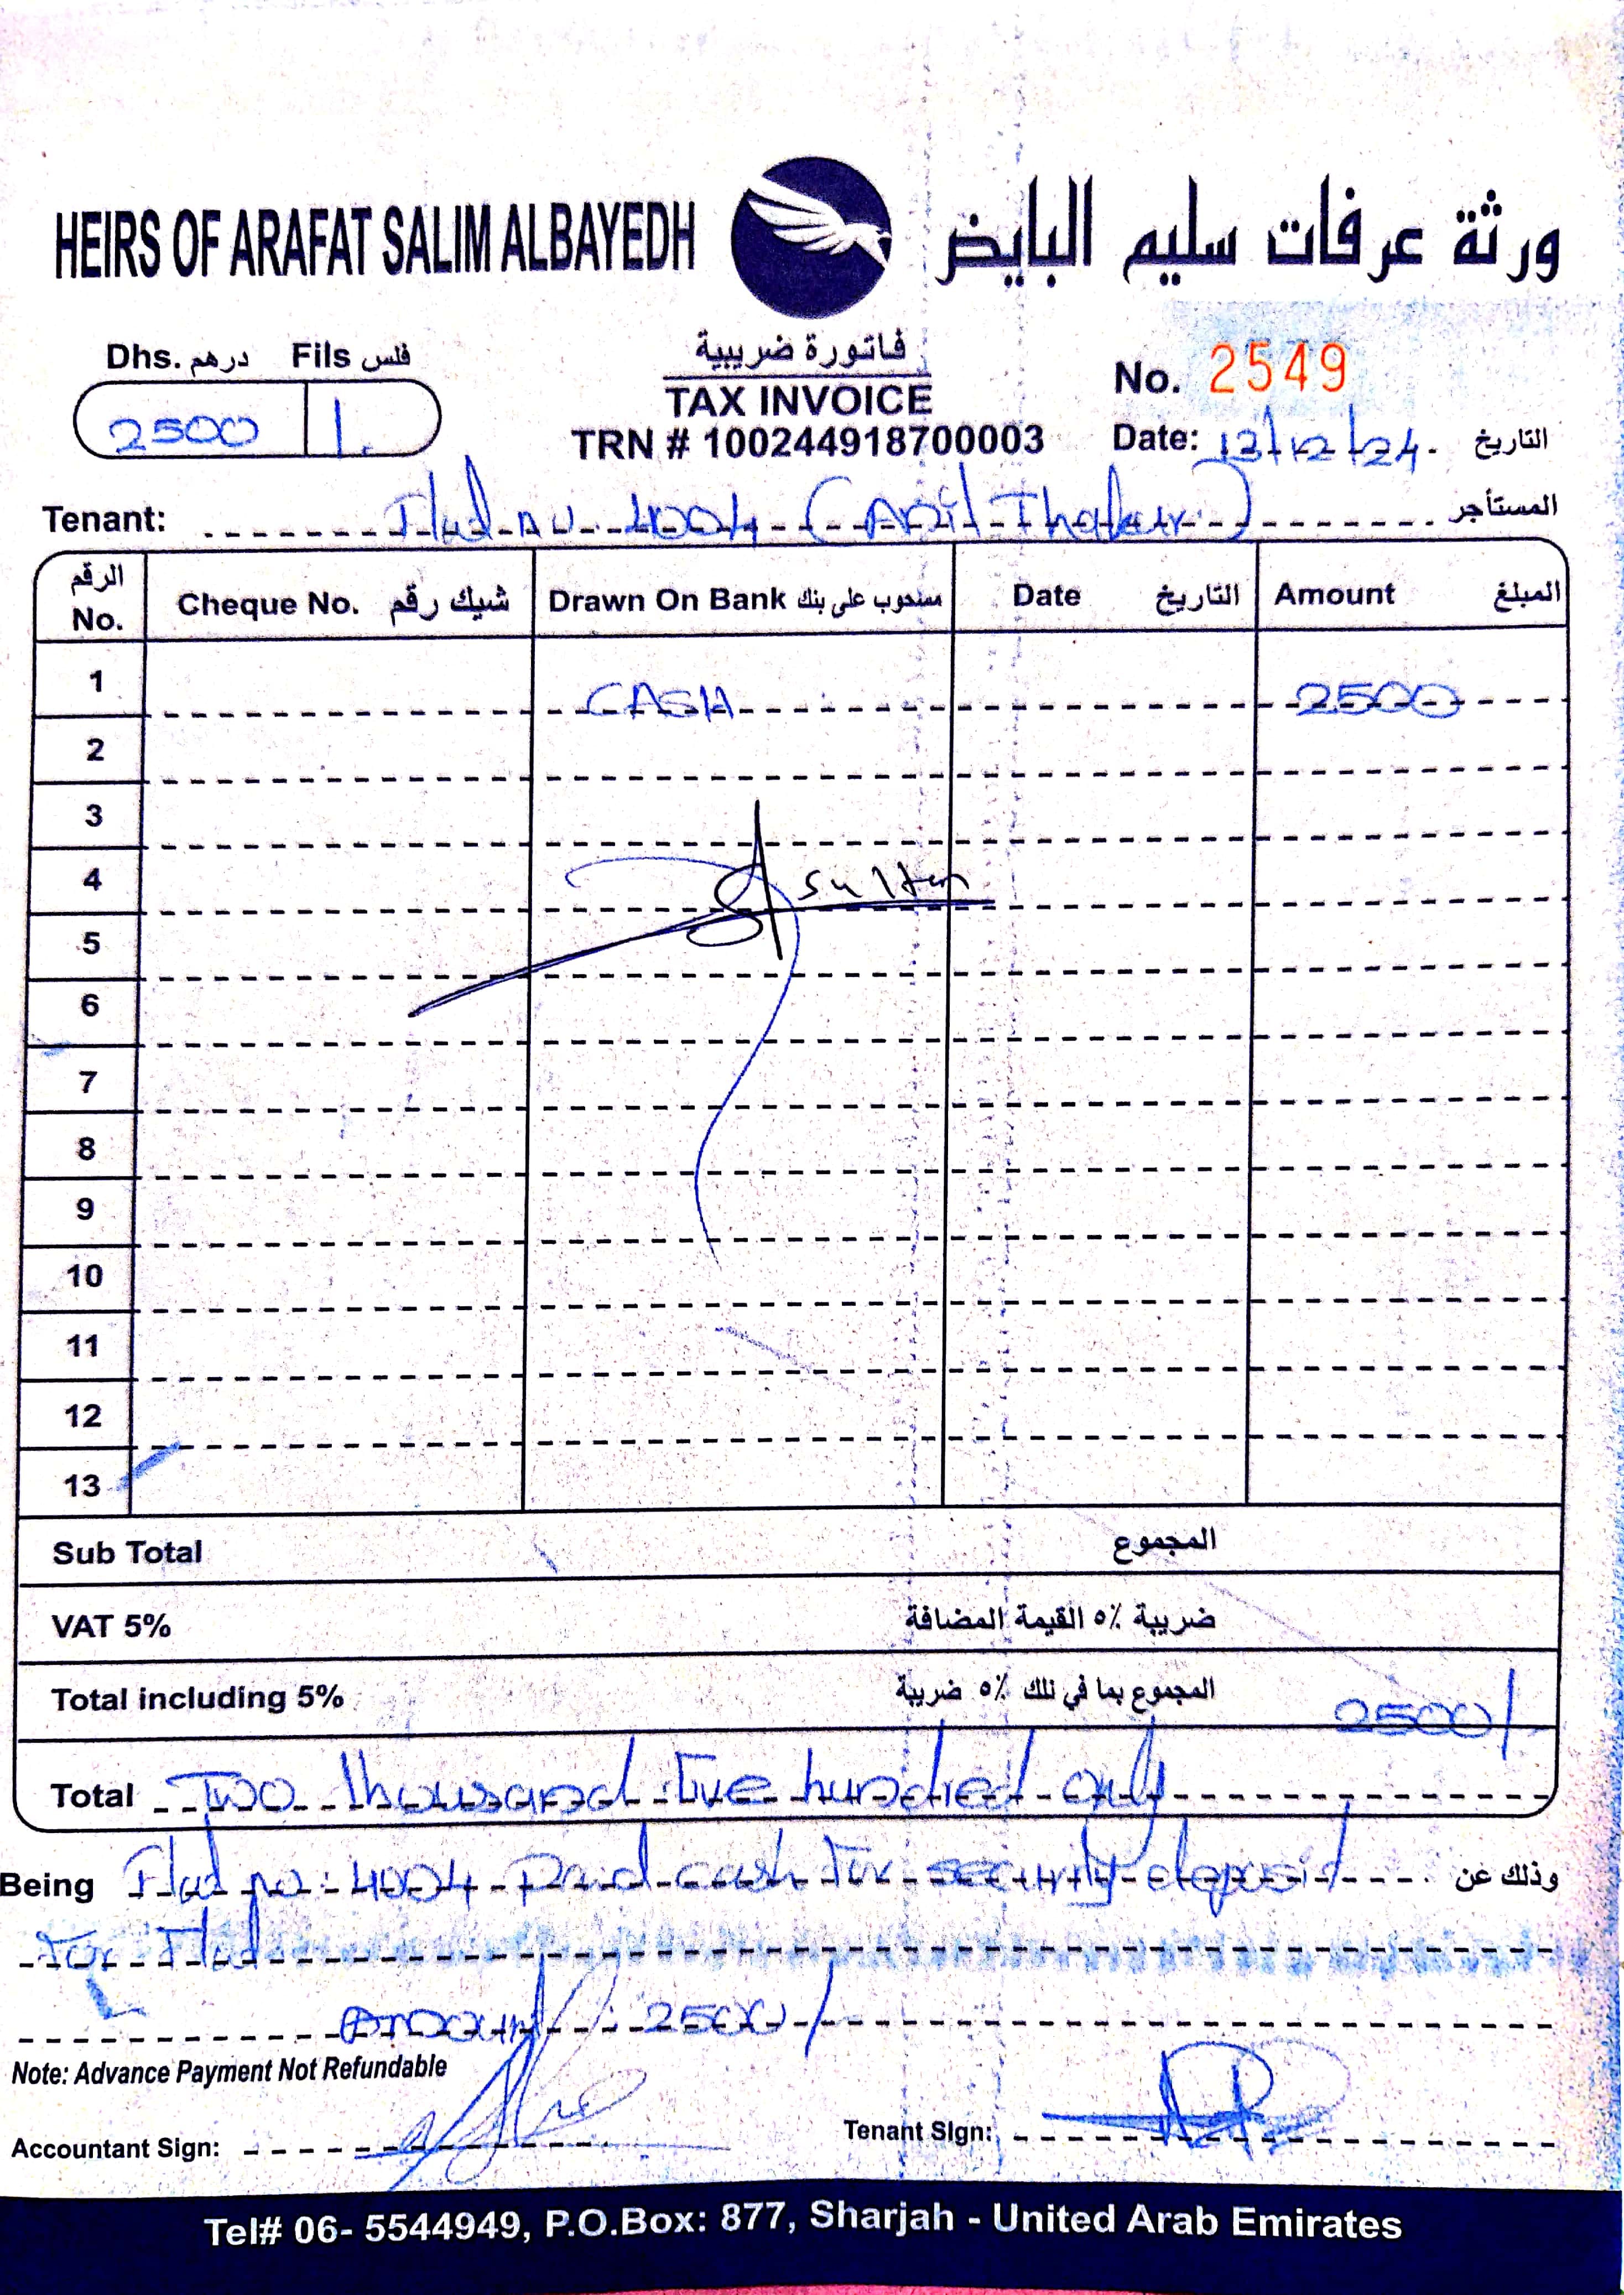 HEIRS OF ARAFAT SALIM ALBAYEDH ورثة عرفات سليم البايض
Dhs. درهم Fils فلس
2500 /.
فاتورة ضريبية
TAX INVOICE
TRN # 100244918700003
No. 2549
Date: 13/12/24. التاريخ
Tenant: Flat no: 4004 ( Thakur) المستأجر
الرقم No. Cheque No. شيك رقم Drawn On Bank مسحوب على بنك Date التاريخ Amount المبلغ
1 CASH 2500
2
3
4 sultan
5
6
7
8
9
10
11
12
13
Sub Total المجموع
VAT 5% ضريبة ٥٪ القيمة المضافة
Total including 5% المجموع بما في تلك ٥٪ ضريبة 2500/
Total Two thousand Five hundred only
Being Flat no: 4004 Paid cash for security deposit وذلك عن
For Flat
Amount : 2500/
Note: Advance Payment Not Refundable
Accountant Sign:
Tenant Sign:
Tel# 06- 5544949, P.O.Box: 877, Sharjah - United Arab Emirates